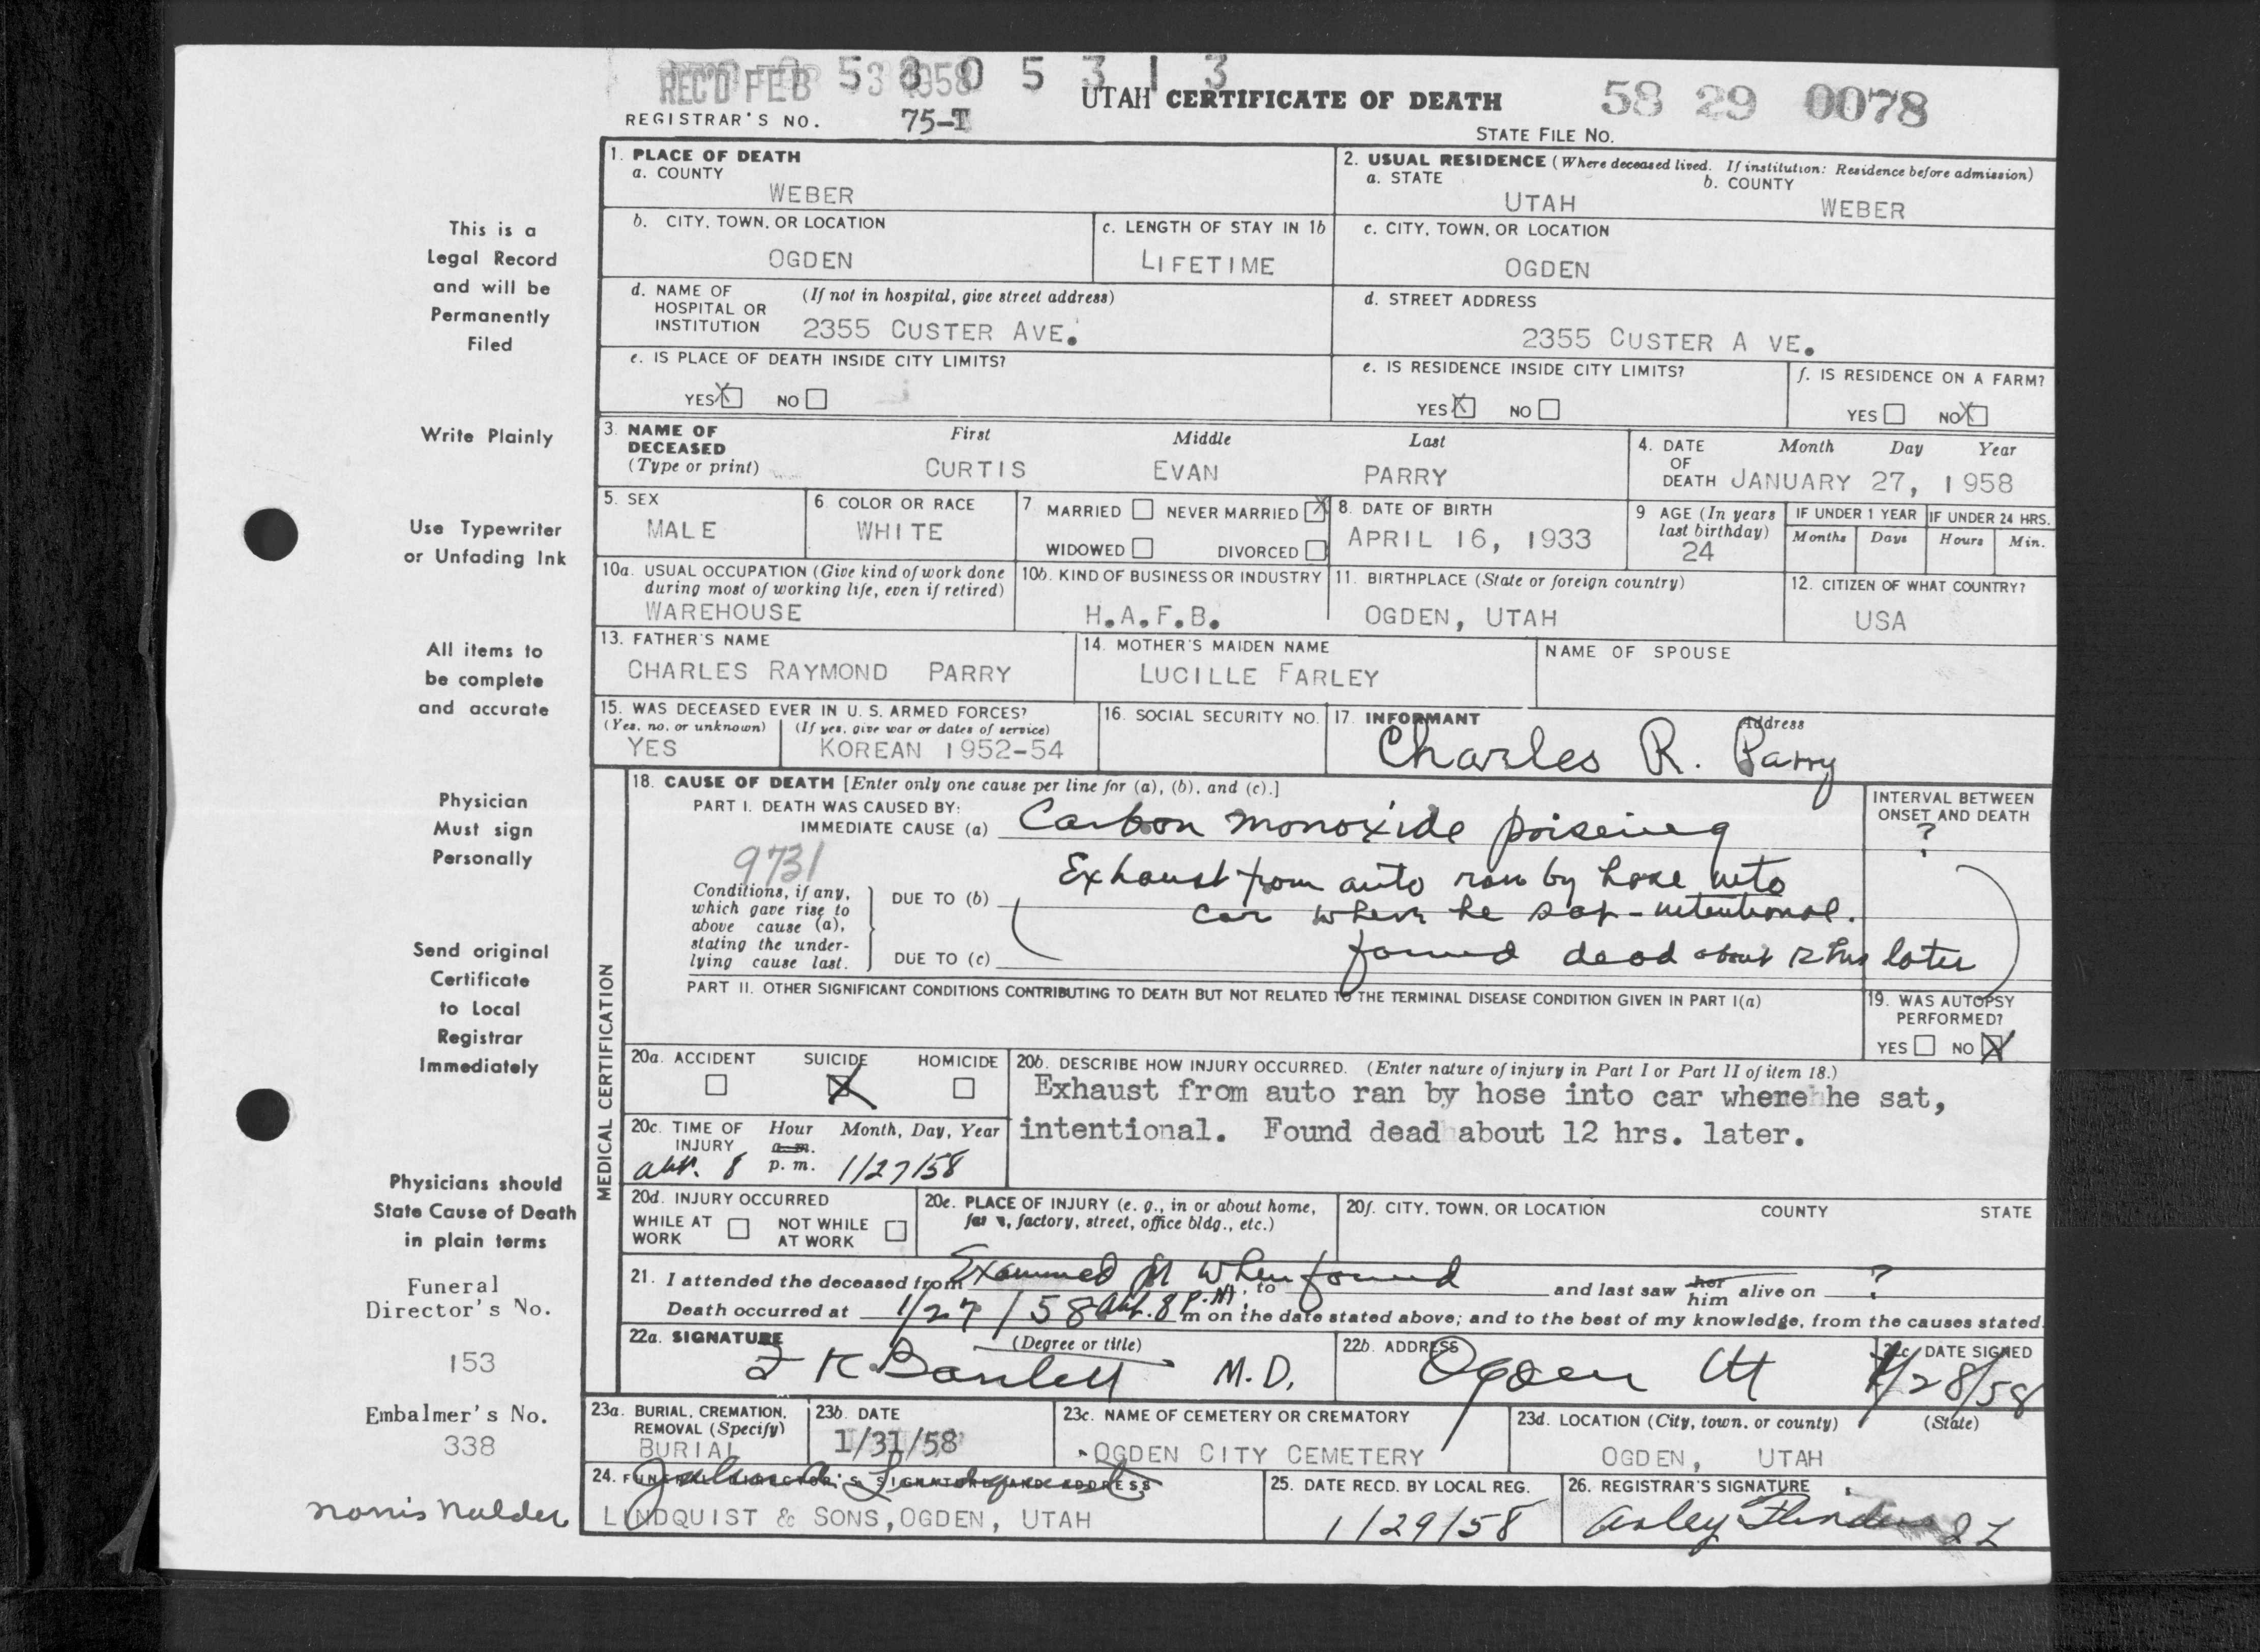 REC'D FEB 3 1958
58 0 5 3 1 3
UTAH CERTIFICATE OF DEATH
58 29 0078
REGISTRAR'S NO. 75-T
STATE FILE NO.
1. PLACE OF DEATH
a. COUNTY
WEBER
2. USUAL RESIDENCE (Where deceased lived. If institution: Residence before admission)
a. STATE b. COUNTY
UTAH WEBER
b. CITY, TOWN, OR LOCATION
OGDEN
c. LENGTH OF STAY IN 1b
LIFETIME
c. CITY, TOWN, OR LOCATION
OGDEN
d. NAME OF HOSPITAL OR INSTITUTION (If not in hospital, give street address)
2355 CUSTER AVE.
d. STREET ADDRESS
2355 CUSTER A VE.
e. IS PLACE OF DEATH INSIDE CITY LIMITS?
YES X NO
e. IS RESIDENCE INSIDE CITY LIMITS?
YES X NO
f. IS RESIDENCE ON A FARM?
YES NO X
3. NAME OF DECEASED (Type or print)
First Middle Last
CURTIS EVAN PARRY
4. DATE OF DEATH Month Day Year
JANUARY 27, 1958
5. SEX
MALE
6. COLOR OR RACE
WHITE
7 MARRIED NEVER MARRIED X
WIDOWED DIVORCED
8. DATE OF BIRTH
APRIL 16, 1933
9 AGE (In years last birthday)
24
IF UNDER 1 YEAR IF UNDER 24 HRS.
Months Days Hours Min.
10a. USUAL OCCUPATION (Give kind of work done during most of working life, even if retired)
WAREHOUSE
10b. KIND OF BUSINESS OR INDUSTRY
H.A.F.B.
11. BIRTHPLACE (State or foreign country)
OGDEN, UTAH
12. CITIZEN OF WHAT COUNTRY?
USA
13. FATHER'S NAME
CHARLES RAYMOND PARRY
14. MOTHER'S MAIDEN NAME
LUCILLE FARLEY
NAME OF SPOUSE
15. WAS DECEASED EVER IN U. S. ARMED FORCES?
(Yes, no, or unknown) (If yes, give war or dates of service)
YES KOREAN 1952-54
16. SOCIAL SECURITY NO.
17. INFORMANT Address
Charles R. Parry
MEDICAL CERTIFICATION
18. CAUSE OF DEATH [Enter only one cause per line for (a), (b), and (c).]
PART I. DEATH WAS CAUSED BY:
IMMEDIATE CAUSE (a) Carbon monoxide poisoning
INTERVAL BETWEEN ONSET AND DEATH
?
9731
Conditions, if any, which gave rise to above cause (a), stating the underlying cause last.
DUE TO (b) Exhaust from auto ran by hose into
car where he sat - intentional.
DUE TO (c) found dead about 12 hrs later
PART II. OTHER SIGNIFICANT CONDITIONS CONTRIBUTING TO DEATH BUT NOT RELATED TO THE TERMINAL DISEASE CONDITION GIVEN IN PART I(a)
19. WAS AUTOPSY PERFORMED?
YES NO X
20a. ACCIDENT SUICIDE HOMICIDE
X
20b. DESCRIBE HOW INJURY OCCURRED. (Enter nature of injury in Part I or Part II of item 18.)
Exhaust from auto ran by hose into car where he sat,
intentional. Found dead about 12 hrs. later.
20c. TIME OF INJURY Hour Month, Day, Year
a.m.
abt. 8 p. m. 1/27/58
20d. INJURY OCCURRED
WHILE AT WORK NOT WHILE AT WORK
20e. PLACE OF INJURY (e. g., in or about home, farm, factory, street, office bldg., etc.)
20f. CITY, TOWN, OR LOCATION COUNTY STATE
21. I attended the deceased from Examined when found to and last saw her him alive on ?
Death occurred at 1/27/58 abt. 8 P.M. m on the date stated above; and to the best of my knowledge, from the causes stated.
22a. SIGNATURE (Degree or title)
Z K Bartlett M.D.
22b. ADDRESS
Ogden Ut
22c. DATE SIGNED
1/28/58
23a. BURIAL, CREMATION, REMOVAL (Specify)
BURIAL
23b. DATE
1/31/58
23c. NAME OF CEMETERY OR CREMATORY
OGDEN CITY CEMETERY
23d. LOCATION (City, town, or county) (State)
OGDEN, UTAH
24. FUNERAL DIRECTOR'S SIGNATURE AND ADDRESS
LINDQUIST & SONS, OGDEN, UTAH
25. DATE RECD. BY LOCAL REG.
1/29/58
26. REGISTRAR'S SIGNATURE
This is a
Legal Record
and will be
Permanently
Filed
Write Plainly
Use Typewriter
or Unfading Ink
All items to
be complete
and accurate
Physician
Must sign
Personally
Send original
Certificate
to Local
Registrar
Immediately
Physicians should
State Cause of Death
in plain terms
Funeral
Director's No.
153
Embalmer's No.
338
Norris Nalder